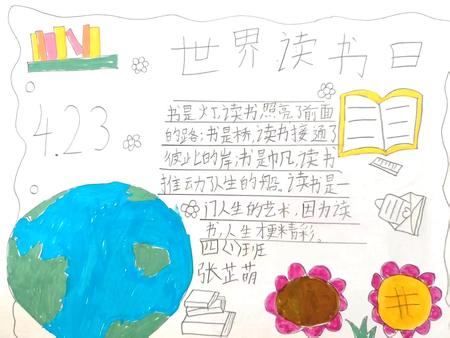 世界读书日
4.23
书是灯,读书照亮了前面
的路;书是桥,读书接通了
彼此的岸;书是帆,读书
推动了人生的船。读书是一
门人生的艺术,因为读
书,人生才更精彩。
四(1)班
张芷萌